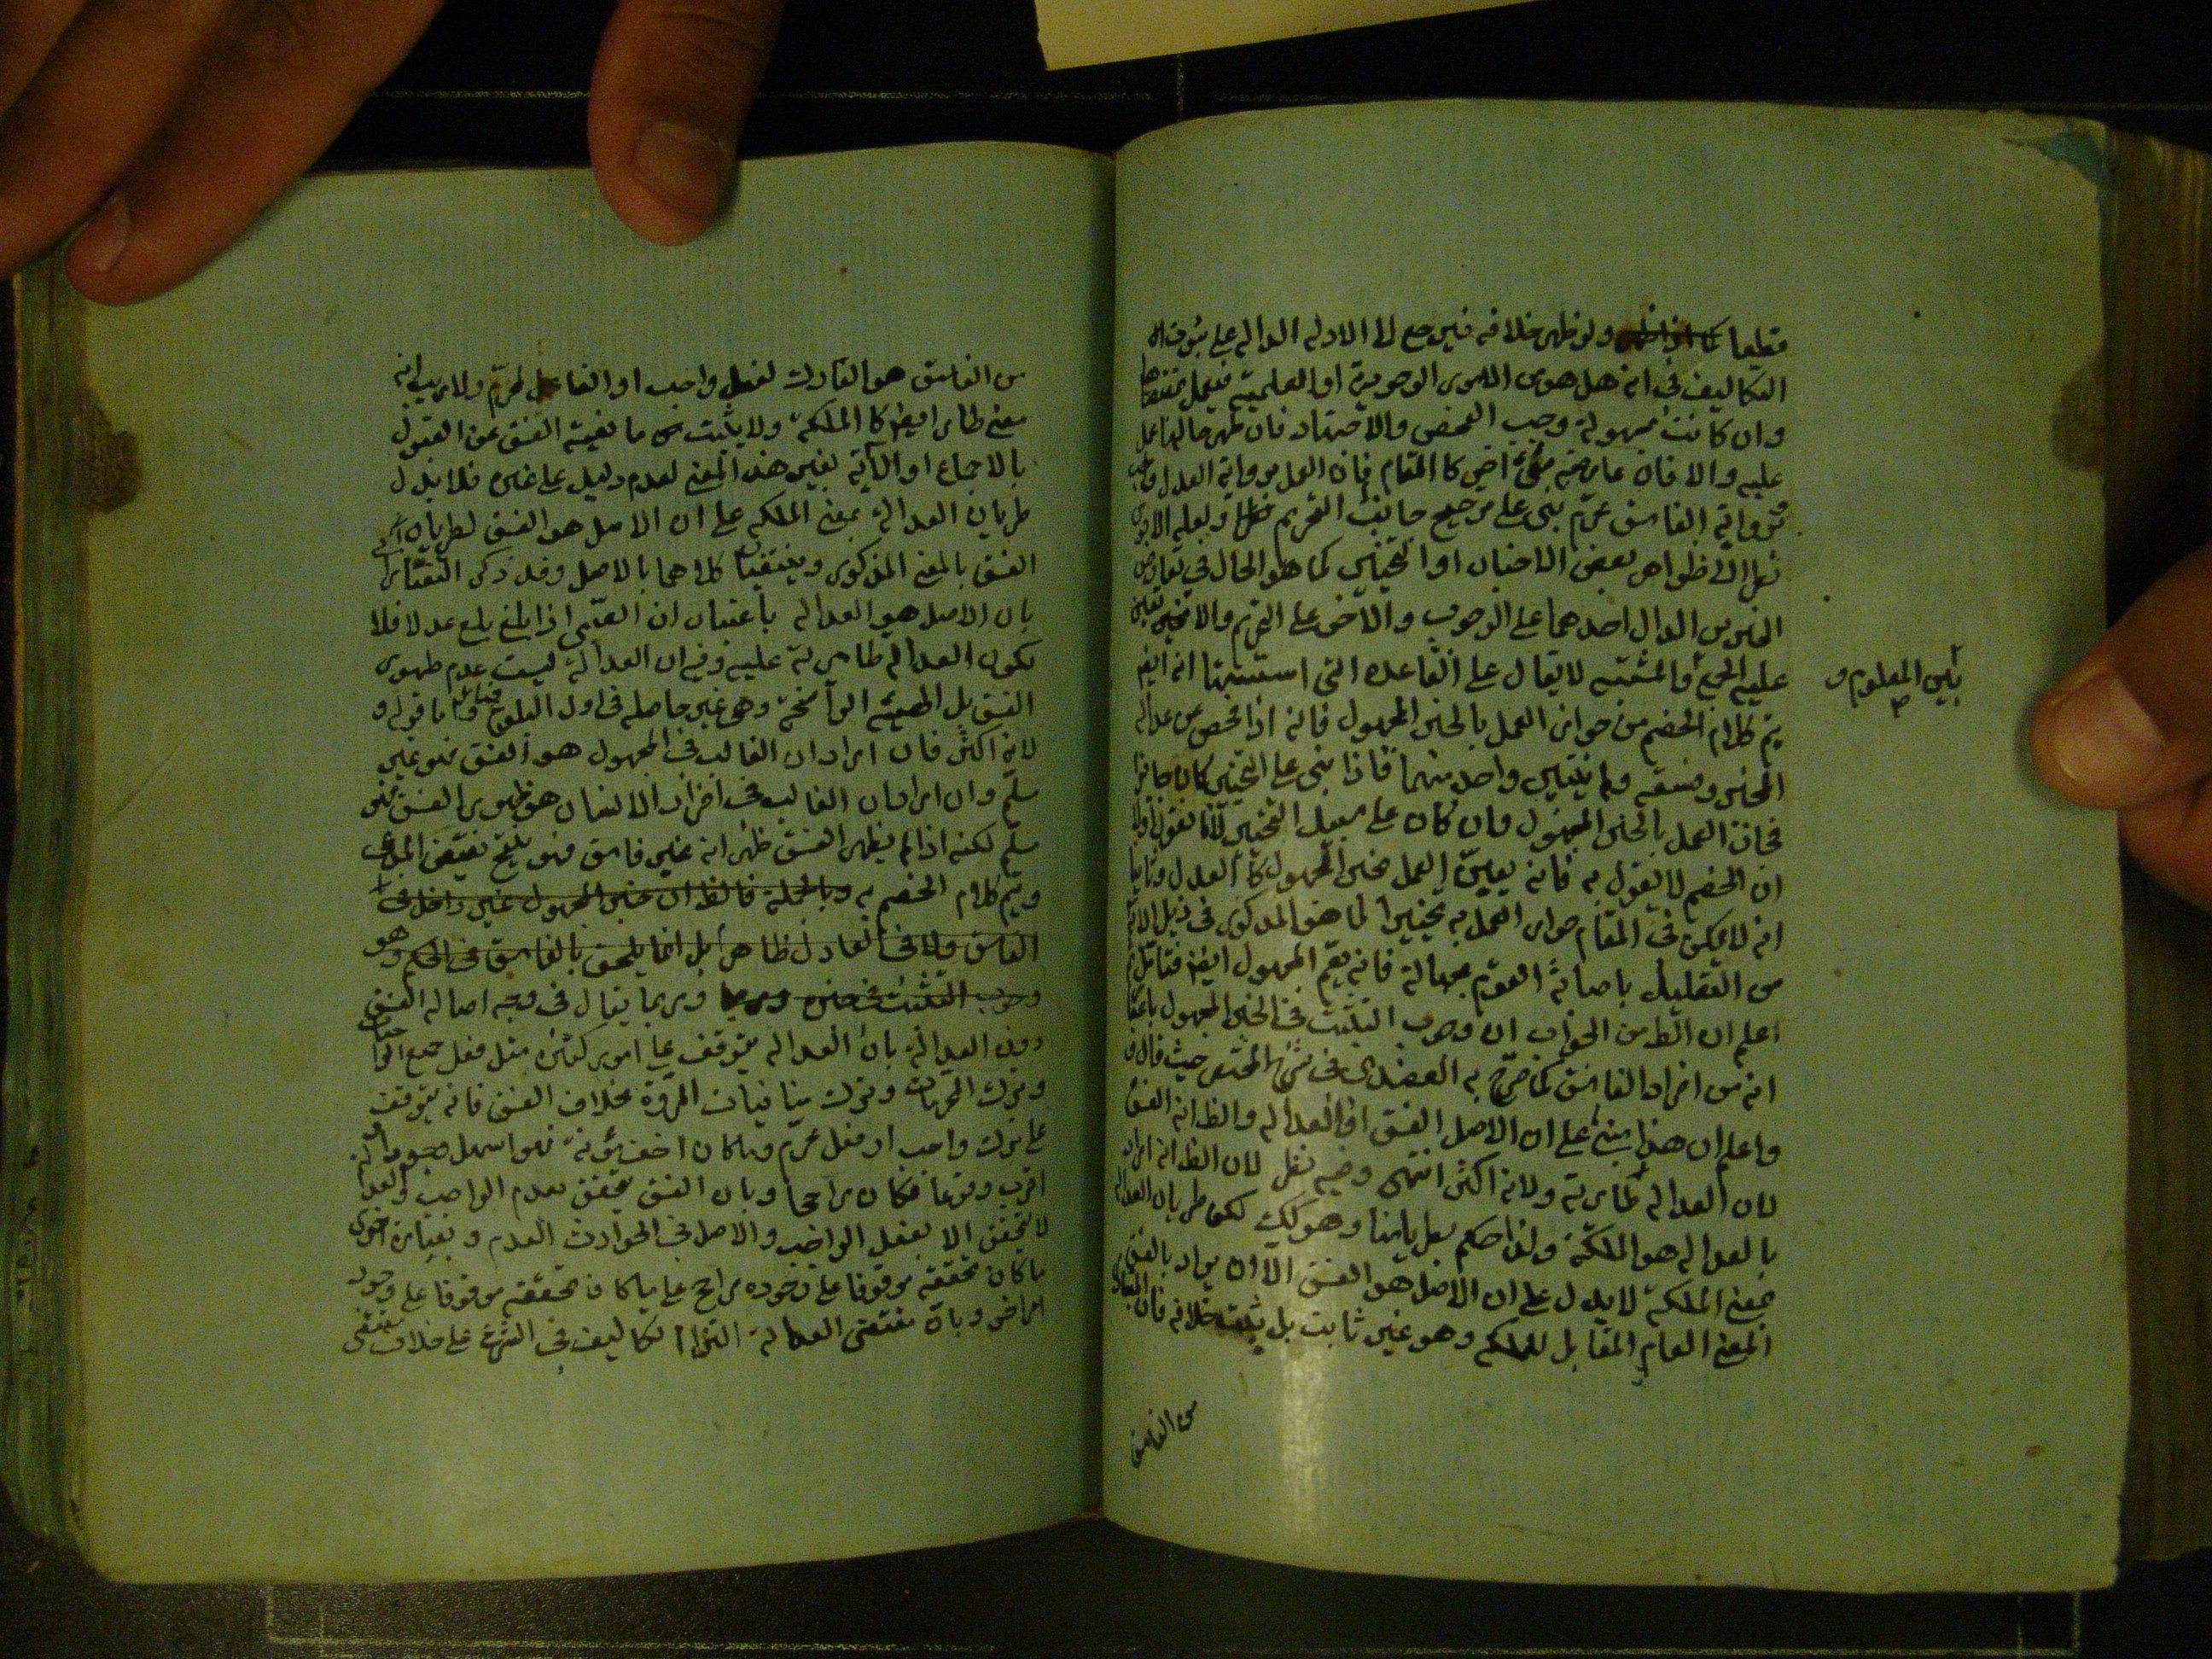 قطعا كما اذا ظهر ولو ظهر خلافه فيرجع الى الادلة الدالة على ثبوت
التكاليف في انه هل هو من الامور الوجودية او العلمية فيعمل بمقتضاها
وان كانت مجهولة وجب الفحص والاجتهاد فان ظهر حالها عمل
عليه والا فان عارضه شئ اخر كا المقام فان العمل برواية العدل واجب
وبرواية الفاسق محرم بنى على ترجيح جانب التحريم
نظرا الى ظواهر بعض الاخبار او التخيير كما هو الحال في تعارض
الخبرين الدال احدهما على الوجوب والاخر على التحريم والا
عليه الجمع والمشتبه لا يقال على القاعدة التي استثنيتها انه ايضا
بين المعلوم و
يتم كلام الخصم من جواز العمل بالخبر المجهول فانه اذا فحص عن عدالة
المخبر وفسقه ولم يتبين واحد منهما فاذا بنى على التخيير كان جايزا
فجاز العمل بالخبر المجهول وان كان على سبيل التخيير لانا نقول اولا
ان الخصم لا يقول به فانه يعين العمل بخبر المجهول كا العدل وثانيا
انه لا يمكن في المقام جواز العمل به تخييرا لما هو المذكور في ذيل الاية
من التعليل باصابة القوم بجهالة فانه يعم المجهول ايضا فتامل
اعلم ان الظ من الجواب ان وجوب التثبت في الخبر المجهول باعتبار
انه من افراد الفاسق كما صرح به العضدى في شرح المختصر حيث قال
واعلم ان هذا مبنى على ان الاصل الفسق او العدالة والظ انه الفسق
لان العدالة طارية ولانه اكثر انتهى وفيه نظر لان الظ انه اراد
بالعدالة هو الملكة ولذا حكم بطريانها وهو كك لكن طريان العدالة
بمعنى الملكة لا يدل على ان الاصل هو الفسق الا ان يراد بالفسق
المعنى العام المقابل للملكة وهو غير ثابت بل يثبت خلافه فان
من الفاسق
من الفاسق هو التارك لفعل واجب او الفاعل لمحرم ولا ريب انه
معنى طار ايضا كا الملكة ولا يثبت من مانعية الفسق عن القبول
بالاجماع او الآية بغير هذا المعنى لعدم دليل على غيره فلا يدل
طريان العدالة بمعنى الملكة على ان الاصل هو الفسق لطريان
الفسق بالمعنى المذكور وينتفيان كلاهما بالاصل وقد ذكر التفتازاني
بان الاصل هو العدالة باعتبار ان الصبي اذا بلغ بلغ عدلا فلا
تكون العدالة طارية عليه وفيه ان العدالة ليست عدم ظهور
الفسق بل الهيئة الراسخة وهي غير حاصلة في اول البلوغ فتامل واما قوله و
لانه اكثر فان اراد ان الغالب في المجهول هو الفسق فهو غير
سلم وان اراد ان الغالب في افراد الانسان هو ظهور الفسق فهو
سلم لكنه اذا لم يظهر الفسق ظهر انه غير فاسق فهو ينتج نقيض المدعى
ويتم كلام الخصم به وبالجملة فالظ ان خبر المجهول غير داخل في
الفاسق ولا في العادل ظاهرا بل انما يلحق بالفاسق في الحكم وهو
وجوب التثبت في خبره وربما يقال في وجه اصالة الفسق
دون العدالة بان العدالة يتوقف على امور كثيرة مثل فعل جميع الواجبات
وترك المحرمات وترك منافيات المروة بخلاف الفسق فانه يتوقف
على ترك واجب او فعل محرم وما كان اخف مؤنة فهو اسهل وجودا و
اقرب وقوعا فكان راجحا وبان الفسق يتحقق بعدم الواجب والعدالة
لا يتحقق الا بفعل الواجب والاصل في الحوادث العدم وبعبارة اخرى
ما كان تحققه موقوفا على وجوده راجح على ما كان تحققه موقوفا على وجود
امراض وبان مقتضى العدالة التكاليف في الشرع على خلاف مقتضى